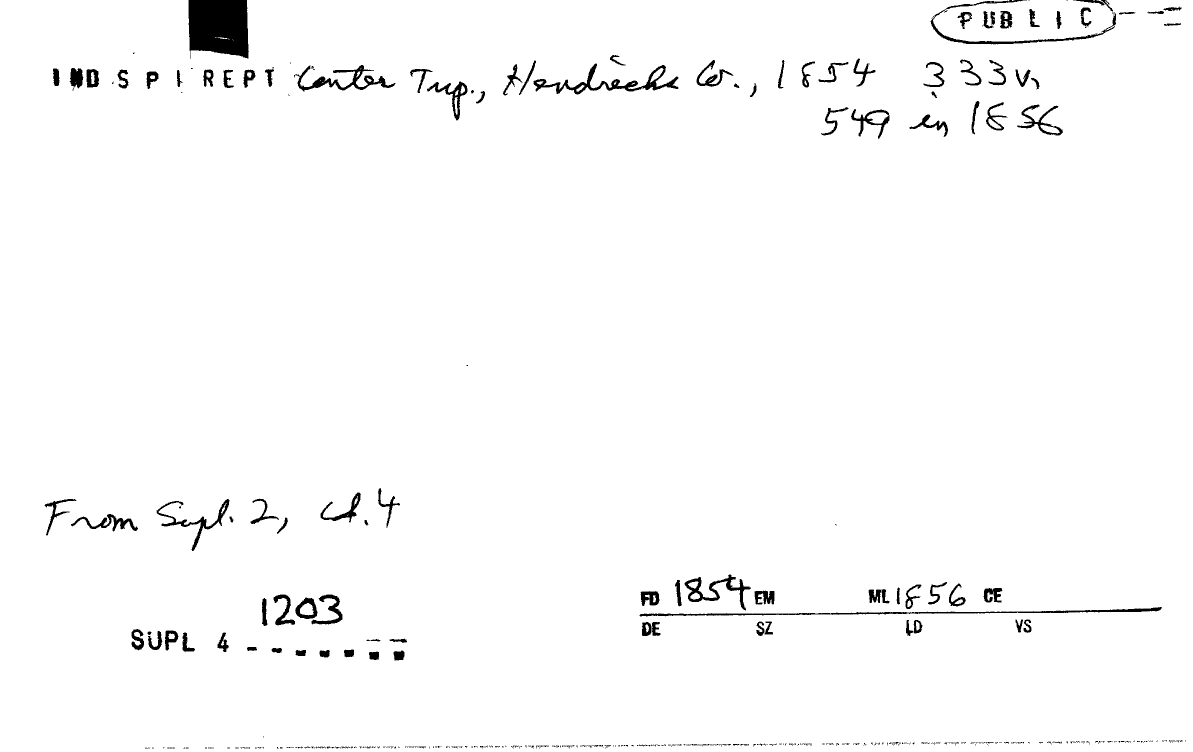 PUBLIC
IND SPI REPT Center Twp., Hendricks Co., 1854 333v,
549 in 1856
From Supl. 2, cd. 4
1203
SUPL 4
FD 1854 EM ML 1856 CE
DE SZ LD VS